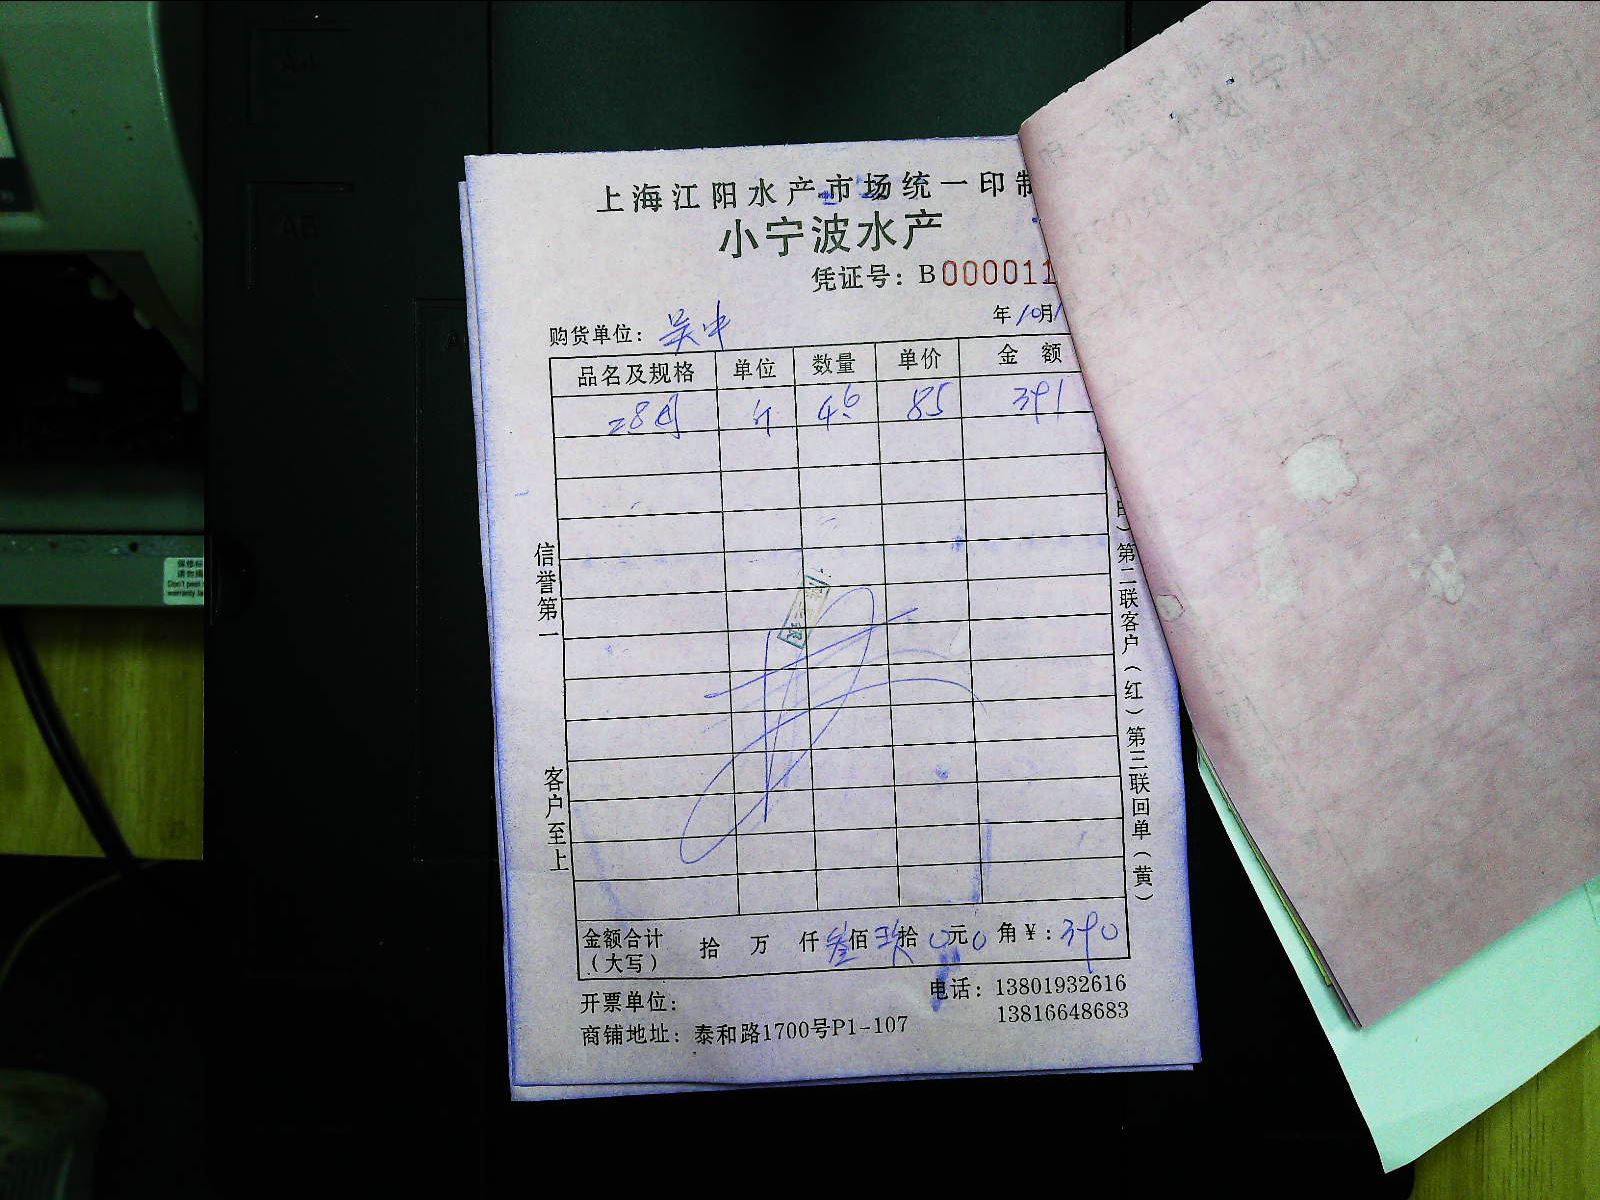 上海江阳水产市场统一印制
小宁波水产
凭证号：B000011
购货单位：吴中
年10月1
品名及规格 单位 数量 单价 金额
斤 4.6 85 391
信誉第一
客户至上
）第二联客户（红）第三联回单（黄）
金额合计（大写） 拾 万 仟叁佰玖拾0元0角￥：390
开票单位：
电话：13801932616
13816648683
商铺地址：泰和路1700号P1-107
保修标
请勿撕
Don't peel
warranty la